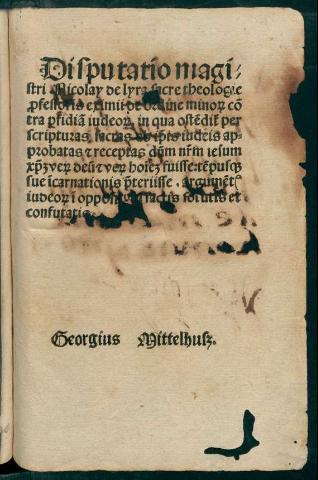 Disputatio magi⸗
stri Nicolay de lyra sacre theologie
ꝓfessoris eximii de ordine minoꝝ cō
tra ꝑfidiā iudeoꝝ, in qua ostēdit̄ per
scripturas sacras ab ip̄is iudeis ap⸗
probatas ⁊ receptas dn̄m nr̄m iesum
xp̄m veꝝ deū ⁊ veꝝ hoīeꝫ fuisse. tēpusqꝫ
sue īcarnationis p̄teriisse. argumēt
iudeoꝝ ī factis solutis et
confutatis
Georgius Mittelhusꝫ.